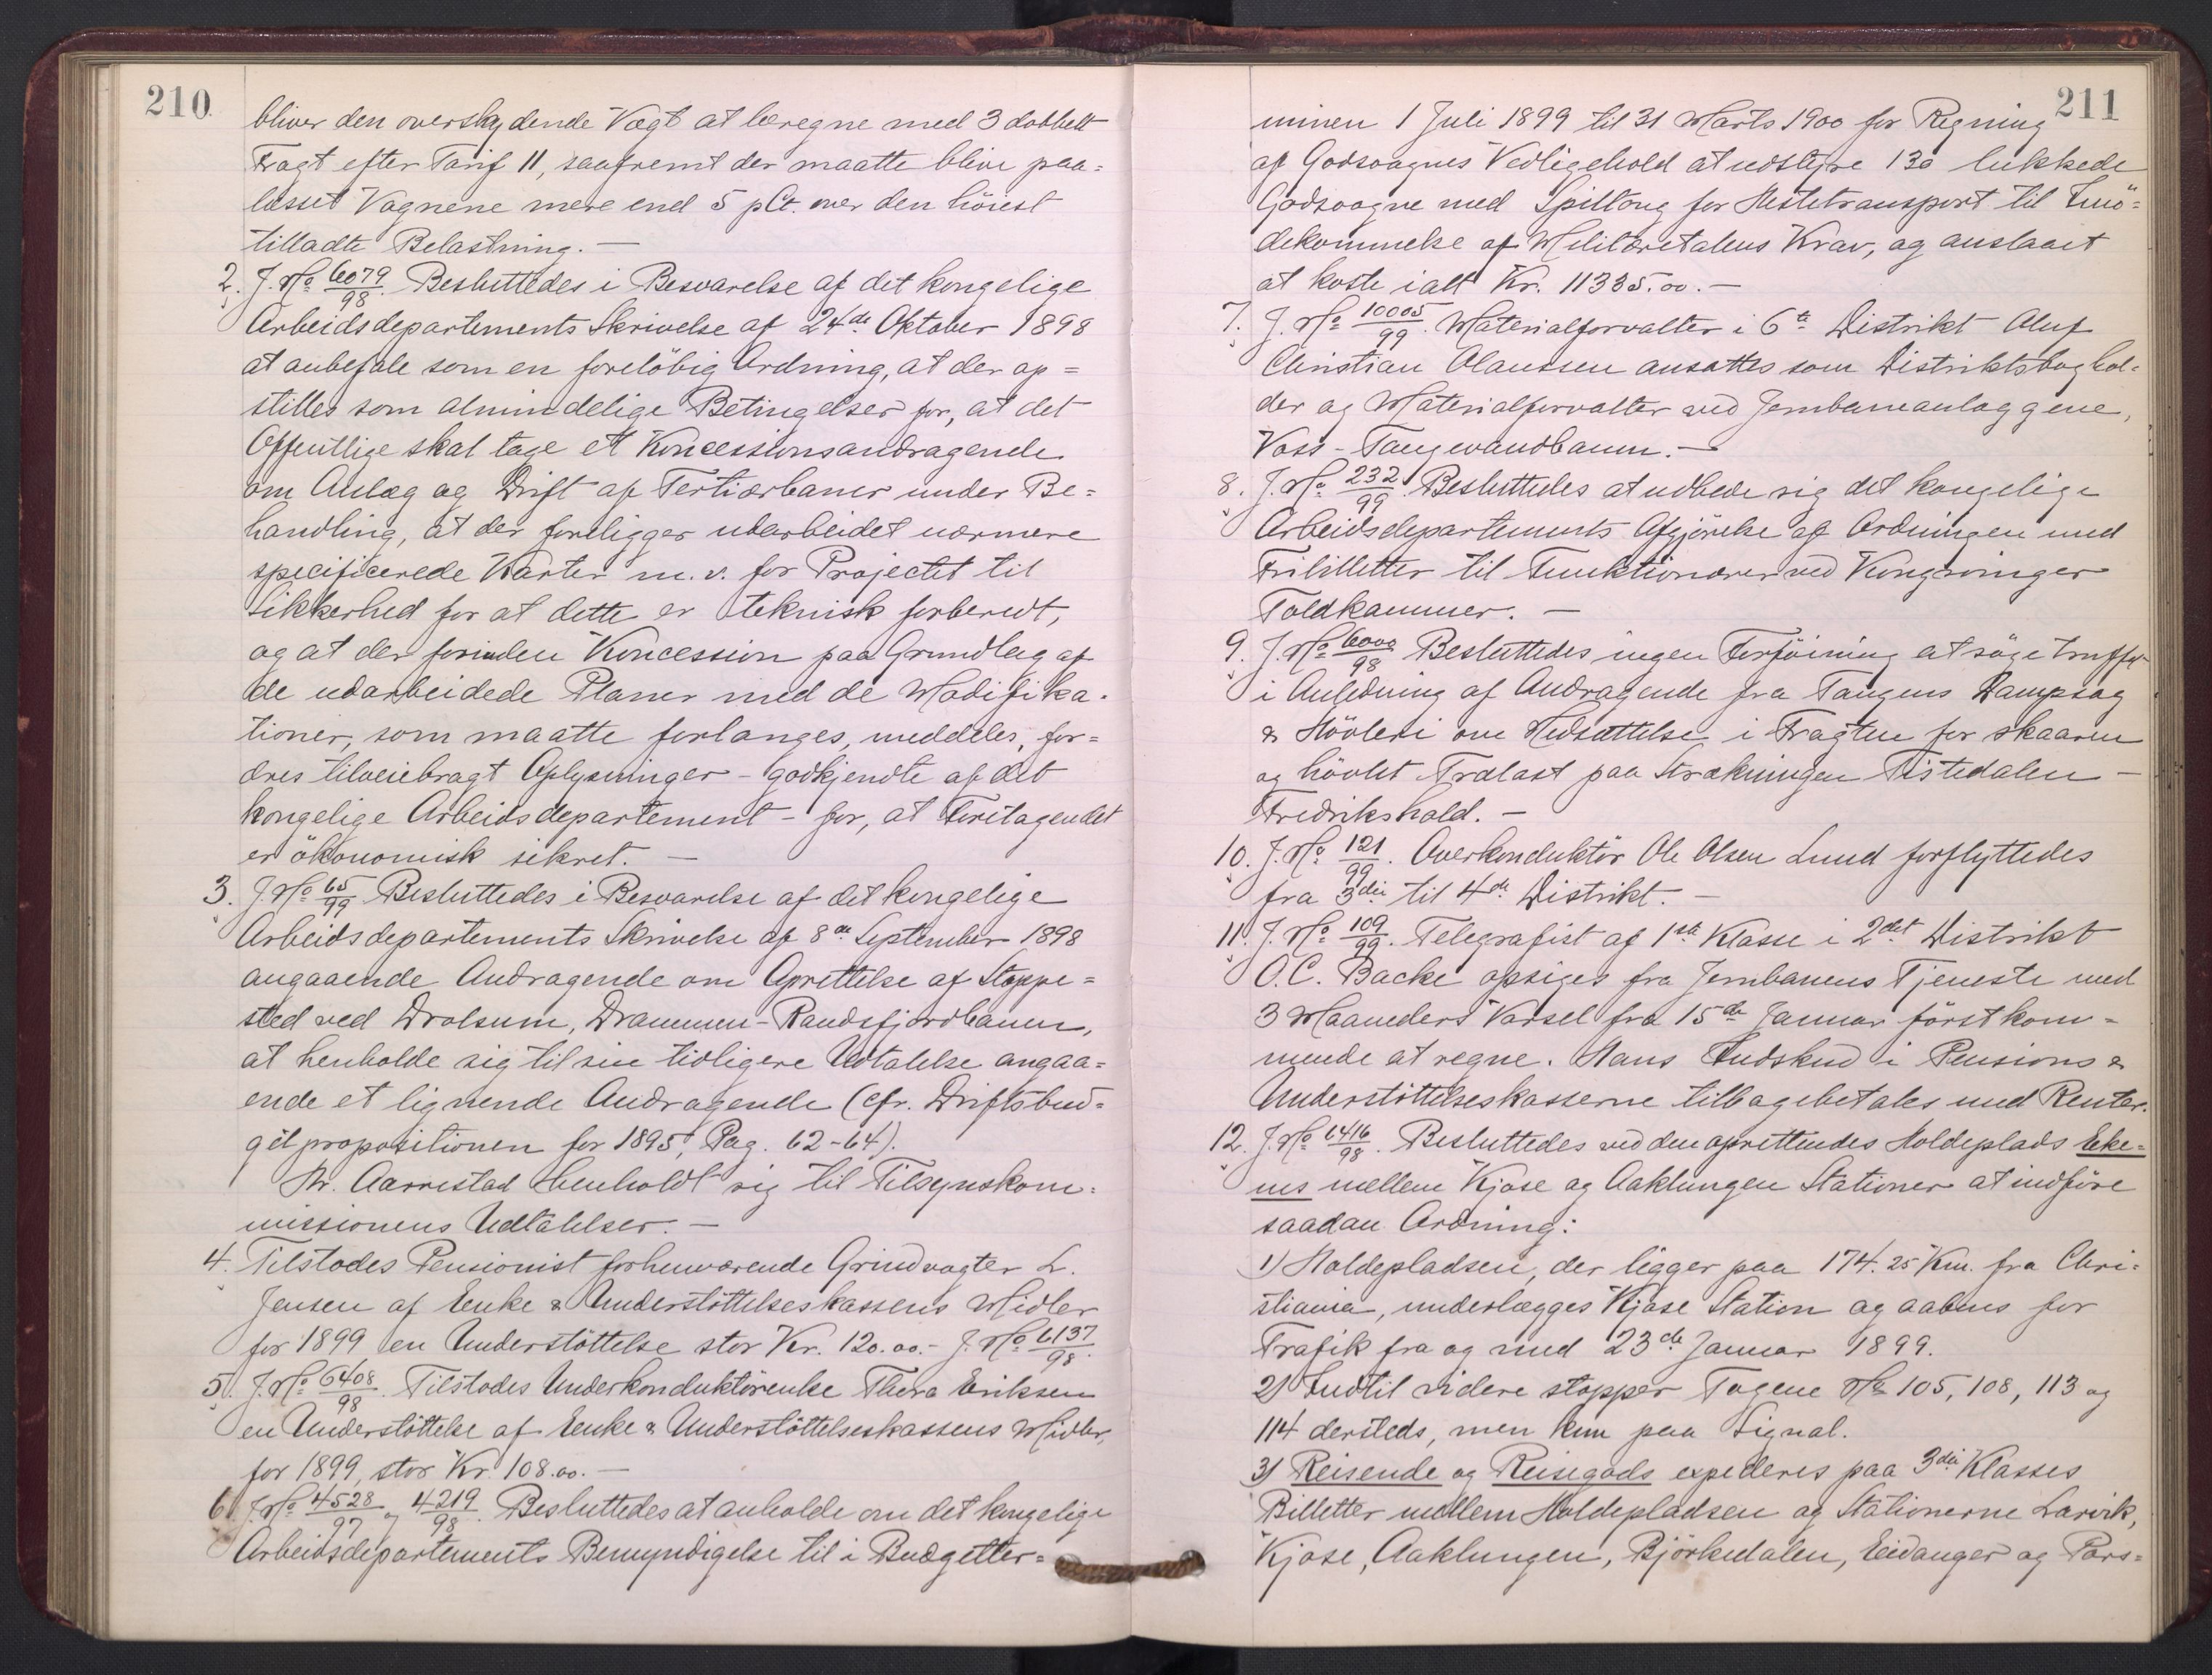 210
bliver den overskydende Vægt at beregne med 3 dobbelt
Fragt efter Tarif 11, saafremt der maatte blive paa=
læsset Vagnene mere end 5 pCt. over den höiest
tilladte Belastning. —
2. J. No 6079/98. Besluttedes i Besvarelse af det kongelige
Arbeidsdepartements Skrivelse af 24de Oktober 1898
at anbefale som en foreløbig Ordning, at der op=
stilles som almindelige Betingelser for, at det
Offentlige skal tage et Koncessionsandragende
om Anlæg og Drift af Tertiærbaner under Be=
handling, at der foreligger udarbeidet nærmere
specificerede Karter m. v. for Projectet til
Sikkerhed for at dette er teknisk forberedt,
og at der forinden Koncession paa Grundlag af
de udarbeidede Planer med de Modifika-
tioner, som maatte forlanges, meddeles, for=
dres tilveiebragt Oplysninger – godkjendte af det
kongelige Arbeidsdepartement – for, at Foretagendet
er ökonomisk sikret. —
3. J. No 65/99 Besluttedes i Besvarelse af det kongelige
Arbeidsdepartements Skrivelse af 8de September 1898
angaaende Andragende om Oprettelse af Stoppe=
sted ved Drolsum, Drammen–Randsfjordbanen,
at henholde sig til sin tidligere Udtalelse angaa=
ende et lignende Andragende (cfr. Driftsbud=
getpropositionen for 1895, Pag. 62–64).
Hr. Aarrestad henholdt sig til Tilsynskom=
missionens Udtalelser. —
4. Tilstodes Pensionist forhenværende Grindvogter L.
Jensen af Enke & Understöttelseskassens Midler
for 1899 en Understöttelse stor Kr. 120.00. – J. No 6137/98.
5. J. No 6408/98. Tilstodes Underkonduktörenke Thora Eriksen
en Understöttelse af Enke & Understöttelseskassens Midler,
for 1899, stor Kr. 108.00. —
6. J. No 4528/97 og 4219/98. Besluttedes at anholde om det kongelige
Arbeidsdepartements Bemyndigelse til i Budgetter=
211
minen 1 Juli 1899 til 31 Marts 1900 for Regning
af Godsvognes Vedligehold at udstyre 130 lukkede
Godsvogne med Spiltoug for Hestetransport til Imö=
dekommelse af Militæretatens Krav, og anslaaet
at koste ialt Kr. 11335.00. —
7. J. No 10005/99. Materialforvalter i 6te Distrikt Oluf
Christian Olaussen ansattes som Distriktsboghol-
der og Materialforvalter ved Jernbaneanlæggene,
Voss – Taugevandbanen. —
8. J. No 232/99. Besluttedes at udbede sig det kongelige
Arbeidsdepartements Afgjörelse af Ordningen med
Fribilletter til Funktionærer ved Kongsvinger
Toldkammer. —
9. J. No 6000/98 Besluttedes ingen Forföining at söge truffet
i Anledning af Andragende fra Tangens Dampsag
& Hövleri om Nedsættelse i Fragten for skaaren
og hövlet Trælast paa Strækningen Tistedalen –
Fredrikshald. —
10. J. No 121/99. Overkonduktör Ole Olsen Lund forflyttedes
fra 3die til 4de Distrikt. —
11. J. No 109/99. Telegrafist af 1ste Klasse i 2det Distrikt
O. C. Backe opsiges fra Jernbanens Tjeneste med
3 Maaneders Varsel fra 15de Januar förstkom-
mende at regne. Hans Indskud i Pensions &
Understöttelseskasserne tilbagebetales med Renter.
12. J. No 6416/98. Besluttedes ved den oprettendes Holdeplads Eke=
nes mellem Kjose og Aaklungen Stationer at indföre
saadan Ordning:
1) Holdepladsen, der ligger paa 174.25 Km. fra Chri=
stiania, underlægges Kjose Station og aabnes for
Trafik fra og med 23de Januar 1899.
2) Indtil videre stopper Togene No 105, 108, 113 og
114 dersteds, men kun paa Signal.
3) Reisende og Reisegods expederes paa 3die Klasses
Billetter mellem Holdepladsen og Stationerne Larvik,
Kjose, Aaklungen, Björkedalen, Eidanger og Pors=